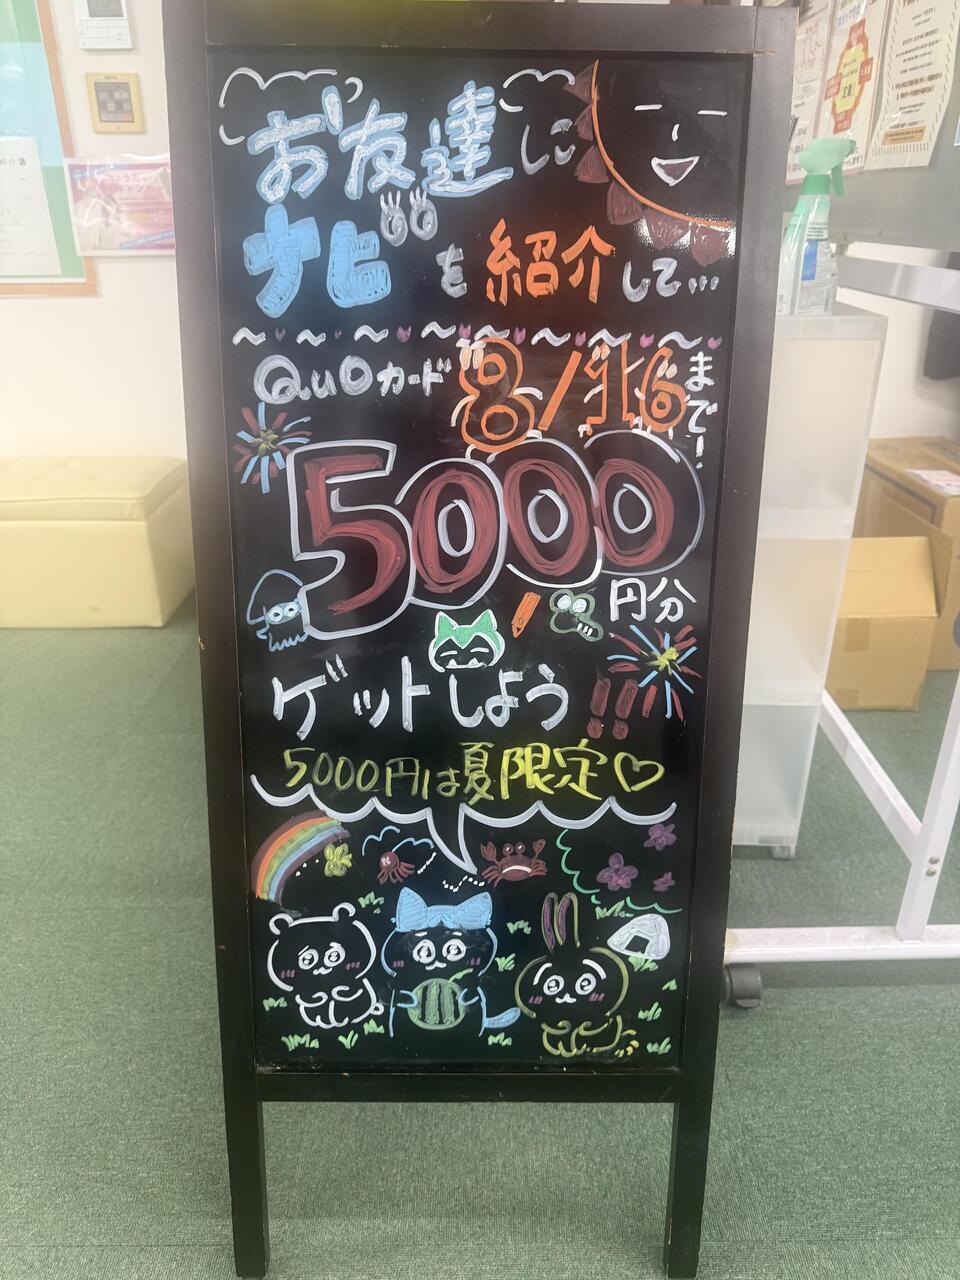 お友達に
ナビを紹介して...
QUOカード 8/16まで!
5000
円分
ゲットしよう!!
5000円は夏限定♡